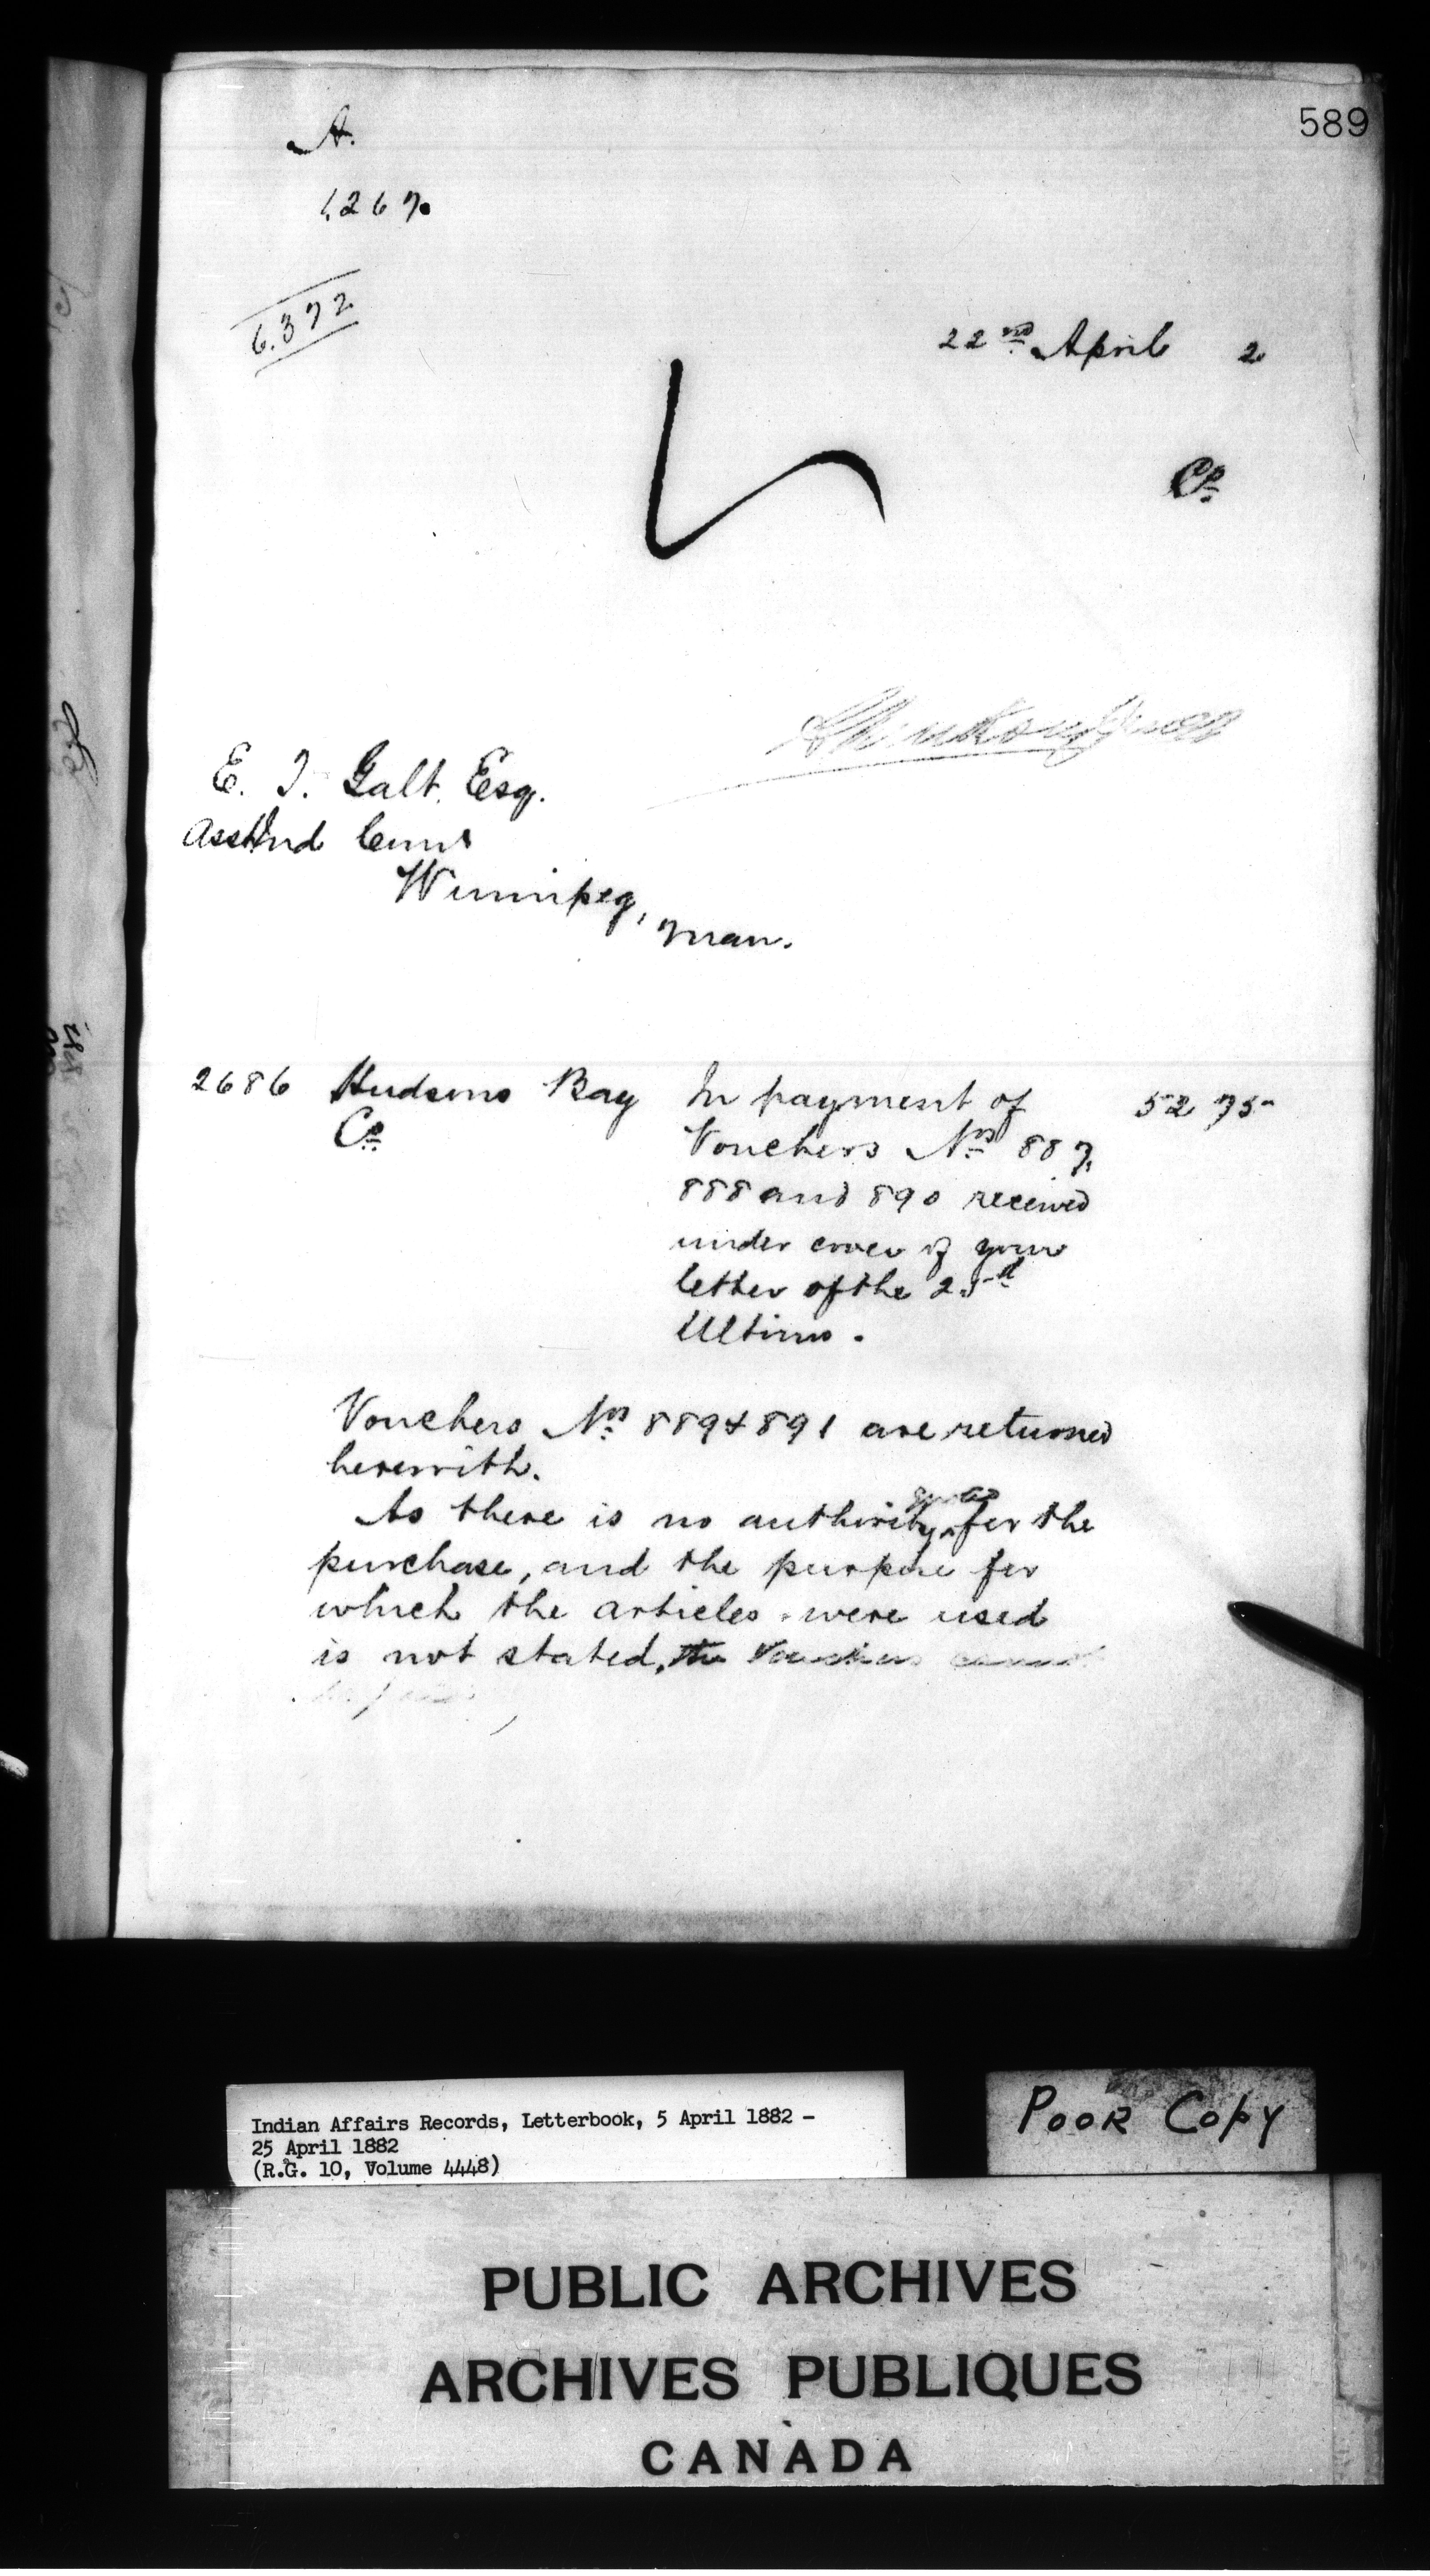 589
A.
1,267.
6.372
22nd April 2
Co
E. T. Galt. Esq.
Asst Ind Comr
Winnipeg,
Man.
2686 Hudsons Bay In payment of 52 75
Co. Vouchers Nos 887,
888 and 890 received
under cover of your
letter of the
Ultimo.
Vouchers Nos 889 & 891 are returned
herewith.
As there is no authority for the
purchase, and the purpose for
which the articles were used
is not stated, the Vouchers cannot
Indian Affairs Records, Letterbook, 5 April 1882 -
25 April 1882
(R.G. 10, Volume 4448)
POOR COPY
PUBLIC ARCHIVES
ARCHIVES PUBLIQUES
CANADA